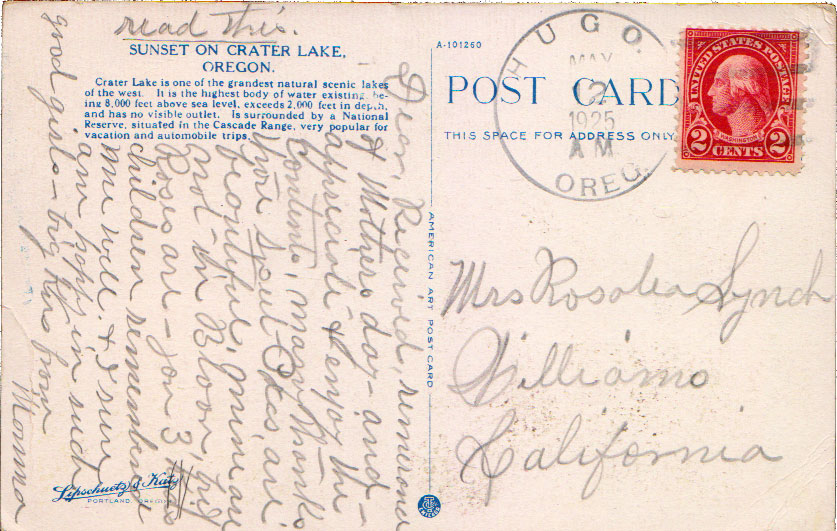 read this.
SUNSET ON CRATER LAKE,
OREGON.
Crater Lake is one of the grandest natural scenic lakes
of the west. It is the highest body of water existing, be-
ing 8,000 feet above sea level, exceeds 2,000 feet in depth,
and has no visible outlet. Is surrounded by a National
Reserve, situated in the Cascade Range, very popular for
vacation and automobile trips.
Dear Received,
& Mothers day - and -
appreciate & enjoy the
Contents, many thanks
your Sweet Peas are
beautiful, mine are
not in Bloom, but
Roses are - you 3
children remembered
me well. & I sure
am happy in such
good girls - big kiss from
Momma
Lipschuetz & Katz
PORTLAND, OREGON
AMERICAN ART POST CARD
A-101260
POST CARD
THIS SPACE FOR ADDRESS ONLY
HUGO.
MAY
12
1925
A M
OREG.
UNITED STATES POSTAGE
WASHINGTON
2 CENTS 2
Mrs Rosalea Lynch
Williams
California